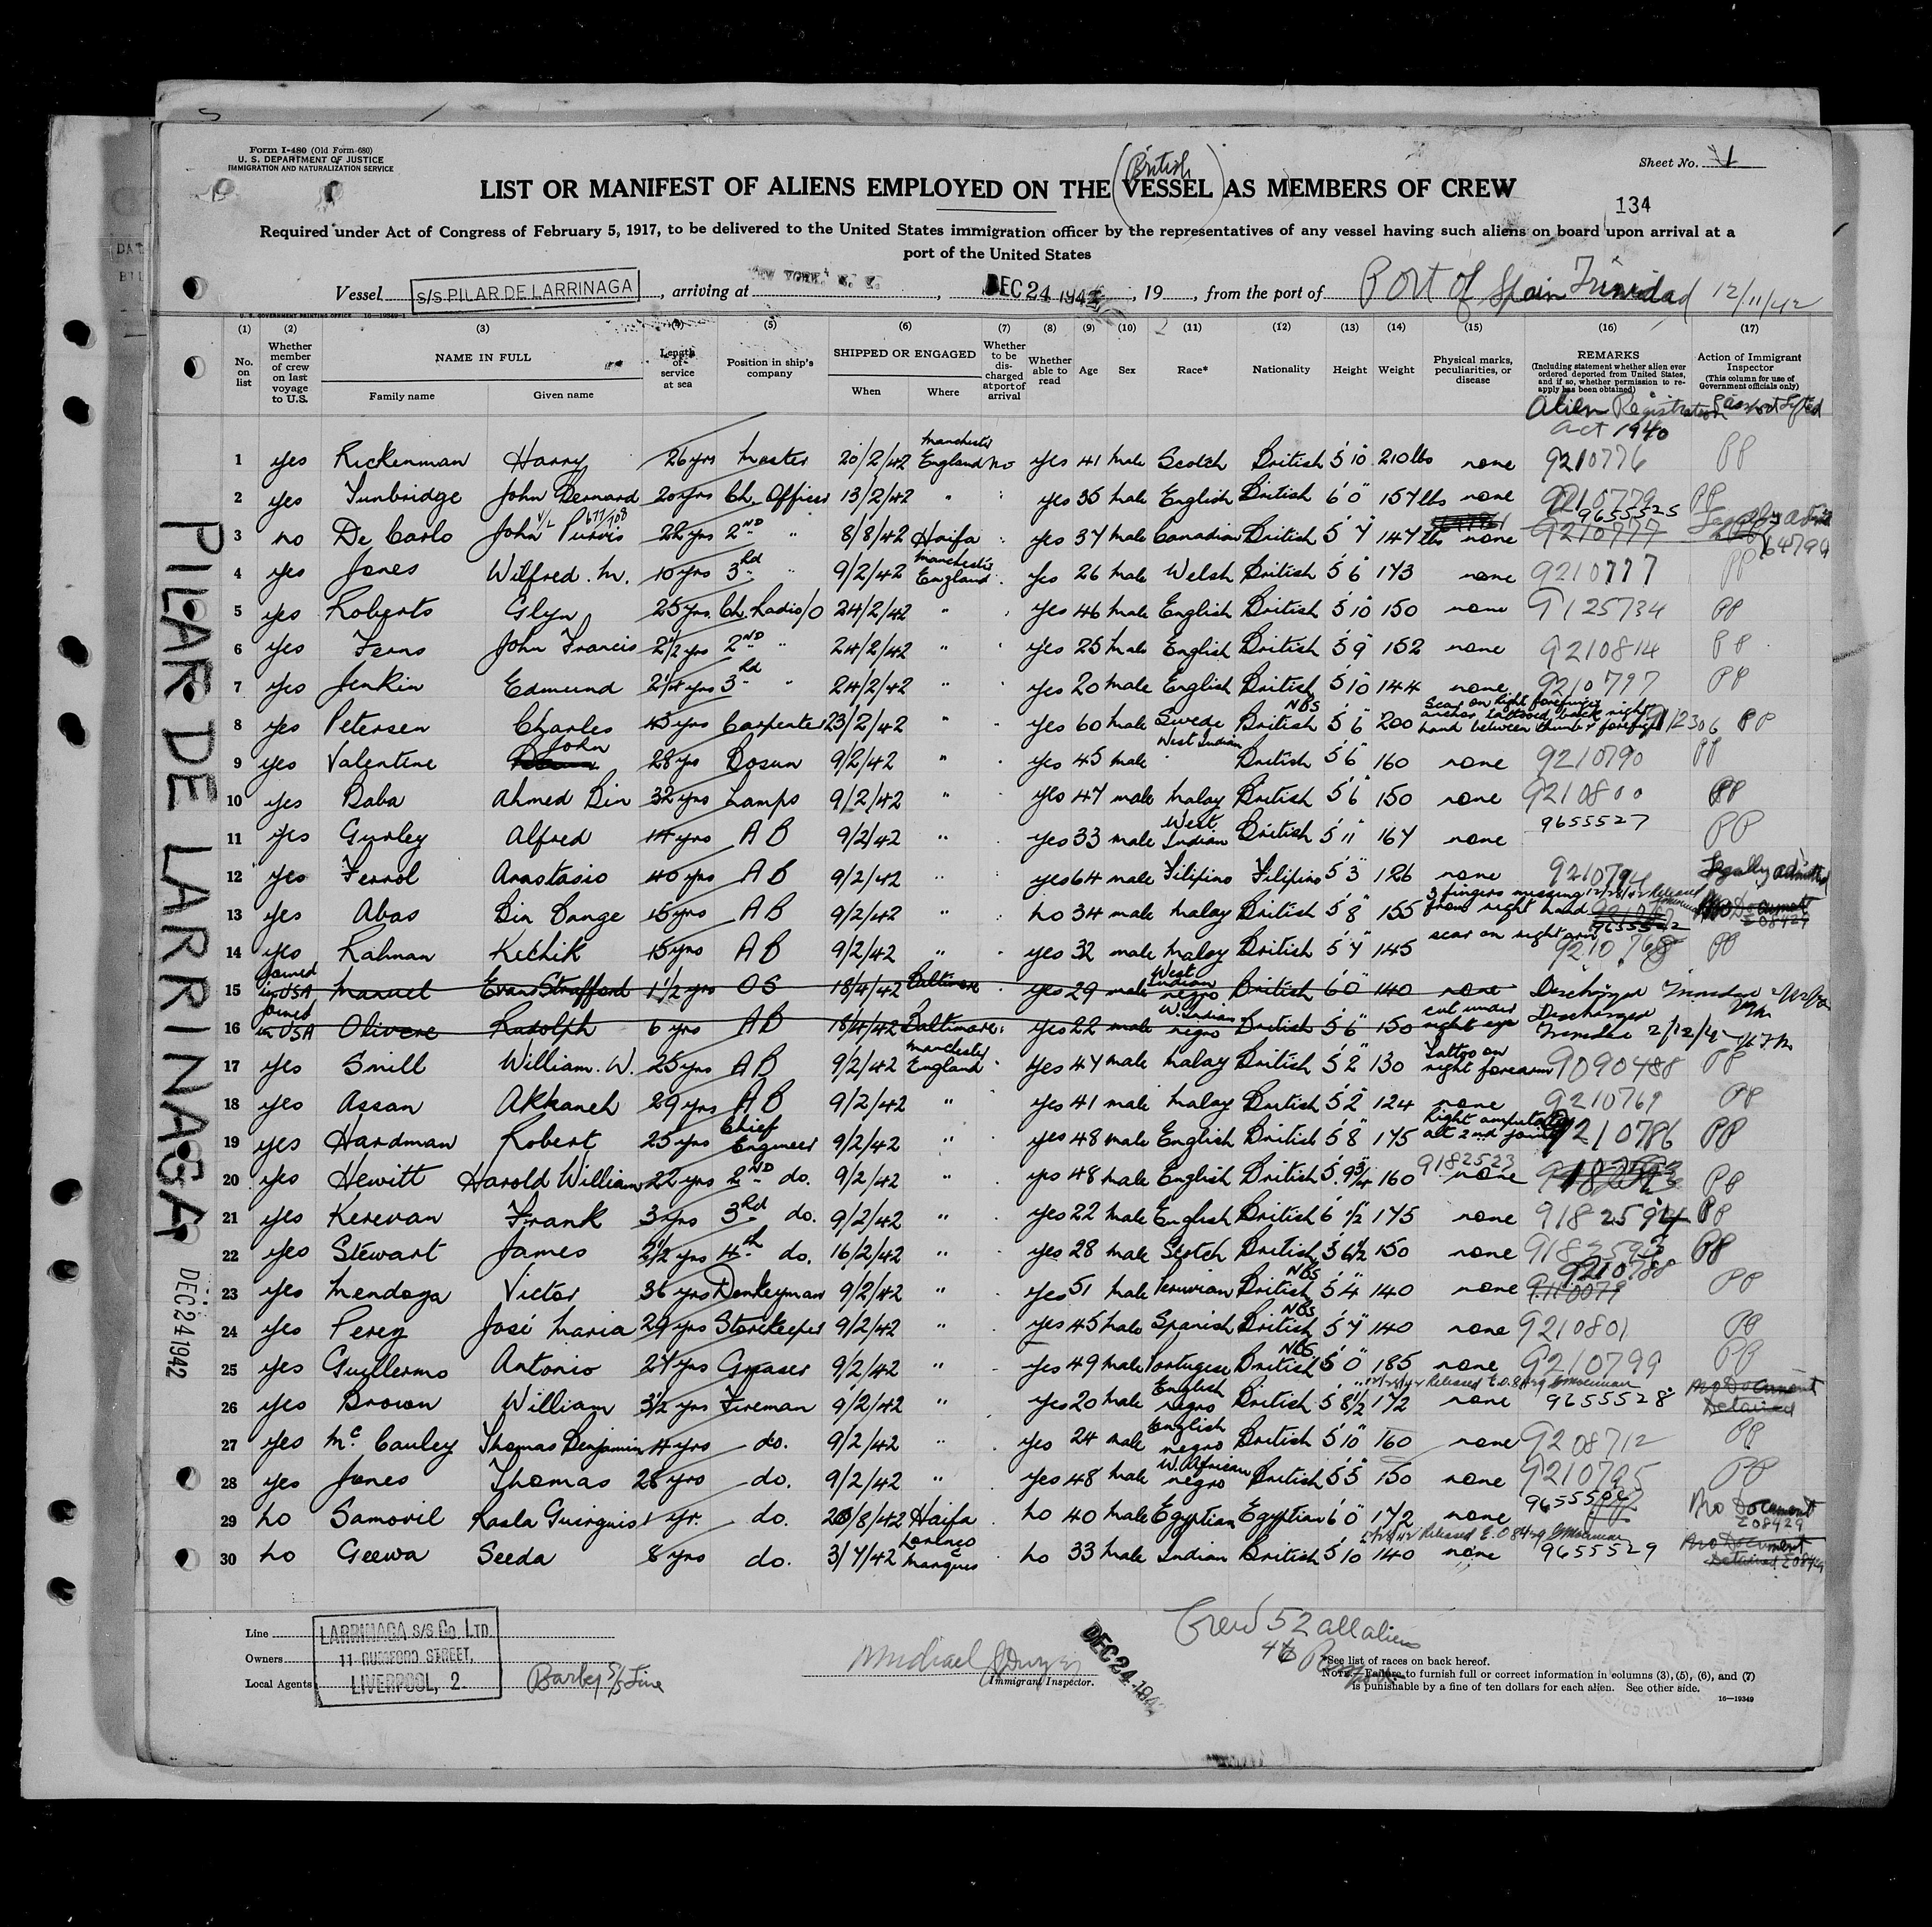 Form I-480 (Old Form 680)
U. S. DEPARTMENT OF JUSTICE
IMMIGRATION AND NATURALIZATION SERVICE
Sheet No. 1
(British)
LIST OR MANIFEST OF ALIENS EMPLOYED ON THE VESSEL AS MEMBERS OF CREW
134
Required under Act of Congress of February 5, 1917, to be delivered to the United States immigration officer by the representatives of any vessel having such aliens on board upon arrival at a
port of the United States
Vessel S/S PILAR DE LARRINAGA, arriving at NEW YORK, N. Y., DEC 24 1942, 19, from the port of Port of Spain Trinidad 12/11/42
U. S. GOVERNMENT PRINTING OFFICE 16—19349-1
(1) (2) (3) (4) (5) (6) (7) (8) (9) (10) (11) (12) (13) (14) (15) (16) (17)
No. on list
Whether member of crew on last voyage to U.S.
NAME IN FULL
Family name
Given name
Length of service at sea
Position in ship's company
SHIPPED OR ENGAGED
When
Where
Whether to be discharged at port of arrival
Whether able to read
Age
Sex
Race*
Nationality
Height
Weight
Physical marks, peculiarities, or disease
REMARKS
(Including statement whether alien ever ordered deported from United States, and if so, whether permission to reapply has been obtained)
Action of Immigrant Inspector
(This column for use of Government officials only)
Alien Registration
Act 1940
1 yes Rickenman Harry 26 yrs Master 20/2/42 Manchester England no yes 41 male Scotch British 5'10" 210 lbs none 9210776 PP
2 yes Tunbridge John Bernard 20 yrs Ch. Officer 13/2/42 " yes 35 male English British 6'0" 154 lbs none 9210779 PP
3 no De Carlo John Purvis 22 yrs 2ND " 8/8/42 Haifa yes 37 male Canadian British 5'7" 147 lbs none 9655525 9210777
4 yes Jones Wilfred. M. 10 yrs 3rd " 9/2/42 Manchester England yes 26 male Welsh British 5'6" 173 none 9210777 PP
5 yes Roberts Glyn 25 yrs. Ch. Radio/O 24/2/42 " yes 46 male English British 5'10" 150 none 9125734 PP
6 yes Ferns John Francis 2½ yrs 2ND " 24/2/42 " yes 25 male English British 5'9" 152 none 9210814 PP
7 yes Jenkin Edmund 2¼ yrs 3rd " 24/2/42 " yes 20 male English British 5'10" 144 none 9210797 PP
8 yes Petersen Charles 45 yrs Carpenter 23/2/42 " yes 60 male Swede NBS British 5'6" 200 Scar on right forefinger anchor tattooed back right hand between thumb & forefinger PP
9 yes Valentine John 28 yrs Bosun 9/2/42 " yes 45 male West Indian British 5'6" 160 none 9210790 PP
10 yes Baba Ahmed Bin 32 yrs Lamps 9/2/42 " yes 47 male Malay British 5'6" 150 none 9210800 PP
11 yes Gurley Alfred 14 yrs AB 9/2/42 " yes 33 male West Indian British 5'11" 164 none 9655527 PP
12 yes Ferrol Anastasio 40 yrs AB 9/2/42 " yes 64 male Filipino Filipino 5'3" 126 none Legally admitted
13 yes Abas Bin Range 15 yrs AB 9/2/42 " no 34 male Malay British 5'8" 155 3 fingers missing from right hand 9655522 No Document E08429
14 yes Rahman Kechik 15 yrs AB 9/2/42 " yes 32 male Malay British 5'7" 145 scar on right arm 9210768 PP
15 Joined in USA Manuel Evan Strafford 1½ yrs OS 18/4/42 Baltimore yes 29 male West Indian negro British 6'0" 140 none Discharged Trinidad
16 Joined in USA Olivere Rudolph 6 yrs AB 18/4/42 Baltimore yes 22 male W. Indian negro British 5'6" 150 cut under right eye Discharged Trinidad
17 yes Snill William. W. 25 yrs AB 9/2/42 Manchester England yes 47 male Malay British 5'2" 130 Tattoo on right forearm 9090488 PP
18 yes Assan Akkaneh 29 yrs AB 9/2/42 " yes 41 male Malay British 5'2" 124 none 9210769 PP
19 yes Hardman Robert 25 yrs Chief Engineer 9/2/42 " yes 48 male English British 5'8" 175 Right amputated at 2nd joint 9210786 PP
20 yes Hewitt Harold William 22 yrs 2ND do. 9/2/42 " yes 48 male English British 5'9¾ 160 9182523 none PP
21 yes Kerevan Frank 3 yrs 3rd do. 9/2/42 " yes 22 male English British 6'½" 175 none 9182594 PP
22 yes Stewart James 2½ yrs 4th do. 16/2/42 " yes 28 male Scotch British 5'6½ 150 none PP
23 yes Mendoza Victor 36 yrs Donkeyman 9/2/42 " yes 51 male Peruvian NBS British 5'4" 140 none 9210788 PP
24 yes Perez José Maria 29 yrs Storekeeper 9/2/42 " yes 45 male Spanish NBS British 5'7" 140 none 9210801 PP
25 yes Guyllermo Antonio 24 yrs Greaser 9/2/42 " yes 49 male Portugese NBS British 5'0" 185 none 9210799 PP
26 yes Brown William 3½ yrs Fireman 9/2/42 " yes 20 male English negro British 5'8½ 172 none 9655528 No Document Detained
27 yes McCauley Thomas Benjamin 4 yrs do. 9/2/42 " yes 24 male English negro British 5'10" 160 none 9208712 PP
28 yes Jones Thomas 28 yrs do. 9/2/42 " yes 48 male W. African negro British 5'5" 150 none 9210795 PP
29 no Samovil Rasla Guirguis 1 yr. do. 20/8/42 Haifa no 40 male Egyptian Egyptian 6'0" 172 none No Document E08429
30 no Geewa Seeda 8 yrs do. 3/7/42 Lorenco Marques no 33 male Indian British 5'10" 140 none 9655529 No Document Detained E08429
PILAR DE LARRINAGA
DEC 24 1942
Line
Owners
Local Agents
LARRINAGA S/S Co. LTD.
11 RUMFORD STREET,
LIVERPOOL, 2.
Barber S/S Line
Michael J Dwyer
Immigrant Inspector.
DEC 24 1942
Crew 52 all aliens
*See list of races on back hereof.
NOTE.—Failure to furnish full or correct information in columns (3), (5), (6), and (7)
is punishable by a fine of ten dollars for each alien. See other side.
16—19349